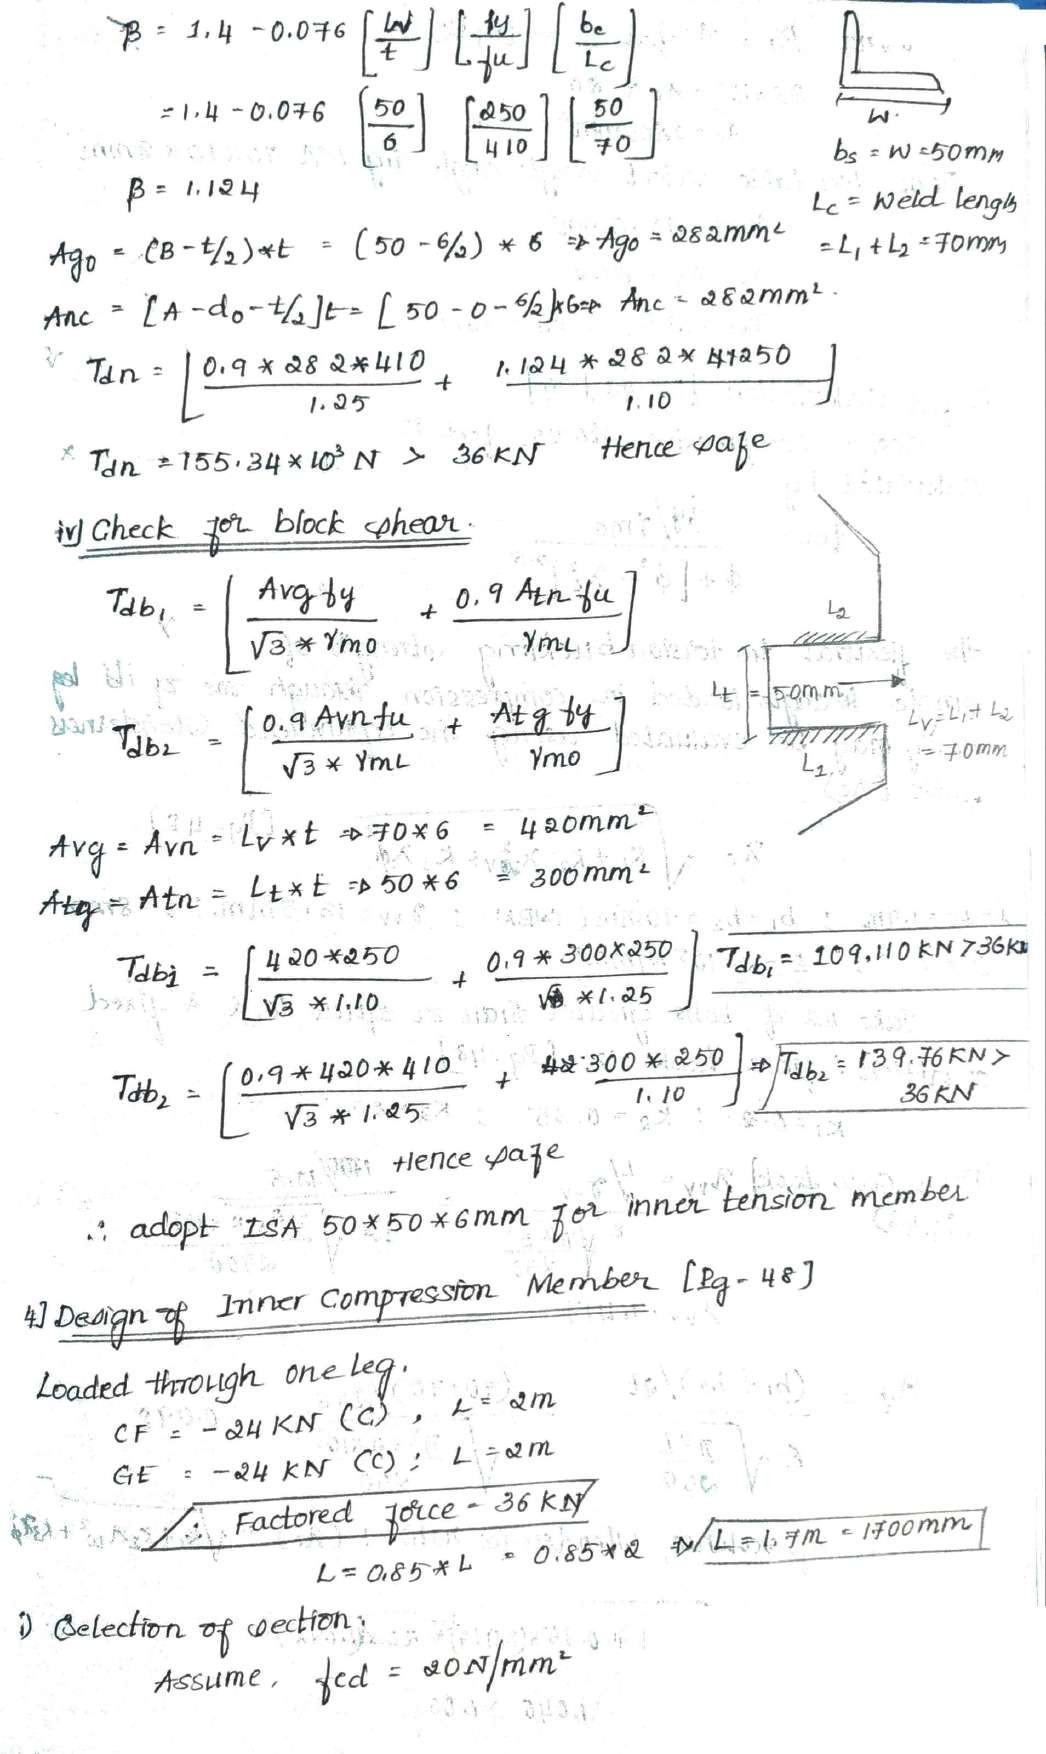 β = 1.4 - 0.076 [W/t] [fy/fu] [bc/Lc]
= 1.4 - 0.076 [50/6] [250/410] [50/70]
W.
bs = W = 50mm
β = 1.124
Lc = Weld length
= L1 + L2 = 70mm
Ago = (B - t/2) * t = (50 - 6/2) * 6 ⇒ Ago = 282mm²
Anc = [A - do - t/2]t = [50 - 0 - 6/2]*6 ⇒ Anc = 282mm².
Tdn = [0.9 * 282 * 410 / 1.25 + 1.124 * 282 * 250 / 1.10]
Tdn = 155.34 × 10³ N > 36 KN Hence safe
iv) Check for block shear.
Tdb1 = [Avg fy / √3 * γmo + 0.9 Atn fu / γmL]
L2
Lt = 50mm
Lv = L1 + L2
= 70mm
L2
Tdb2 = [0.9 Avn fu / √3 * γmL + Atg fy / γmo]
Avg = Avn = Lv × t ⇒ 70 * 6 = 420mm²
Atg = Atn = Lt × t ⇒ 50 * 6 = 300mm²
Tdb1 = [420 * 250 / √3 * 1.10 + 0.9 * 300 × 250 / * 1.25] Tdb1 = 109.110 KN > 36KN
Tdb2 = [0.9 * 420 * 410 / √3 * 1.25 + 300 * 250 / 1.10] ⇒ Tdb2 = 139.76 KN >
36 KN
Hence safe
∴ adopt ISA 50 * 50 * 6mm for inner tension member
4] Design of Inner Compression Member [Pg - 48]
Loaded through one leg.
CF = -24 KN (C), L = 2m
GE = -24 KN (C); L = 2m
∴ Factored force - 36 KN
L = 0.85 * L = 0.85 * 2 ⇒ L = 1.7m = 1700mm
i) Selection of section.
Assume, fcd = 20N/mm²